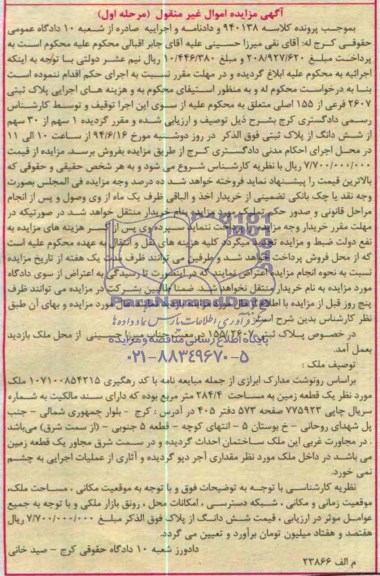 آگهی مزایده اموال غیر منقول (مرحله اول)
بموجب پرونده کلاسه ۹۴۰۱۳۸ و دادنامه و اجراییه صادره از شعبه ۱۰ دادگاه عمومی
حقوقی کرج له: آقای نقی میرزا حسینی علیه آقای جابر اقبالی محکوم علیه محکوم است به
پرداخت مبلغ ۲۰۸/۹۲۷/۶۲۰ و مبلغ ۱۰/۴۴۶/۳۸۰ ریال نیم عشر دولتی با توجه به اینکه
اجرائیه به محکوم علیه ابلاغ گردیده و در مهلت مقرر نسبت به اجرای حکم اقدام ننموده است
بنا به درخواست محکوم له و به منظور استیفای محکوم به و هزینه های اجرایی پلاک ثبتی
۲۶۰۷ فرعی از ۱۵۵ اصلی متعلق به محکوم علیه از سوی این اجرا توقیف و توسط کارشناس
رسمی دادگستری کرج بشرح ذیل توصیف و ارزیابی شده و مقرر گردیده ۱ سهم از ۳۰ سهم
از شش دانگ از پلاک ثبتی فوق الذکر در روز دوشنبه مورخ ۹۴/۶/۱۶ از ساعت ۱۰ الی ۱۱
در محل اجرای احکام مدنی دادگستری کرج از طریق مزایده بفروش برسد. مزایده از قیمت
۷/۷۰۰/۰۰۰/۰۰۰ ریال با نظریه کارشناس شروع می شود و به هر شخص حقیقی و حقوقی که
بالاترین قیمت را پیشنهاد نماید فروخته خواهد شد ده درصد وجه مزایده فی المجلس بصورت
وجه نقد یا چک بانکی تضمینی از خریدار اخذ و الباقی ظرف یک ماه از وی وصول و پس از انجام
مراحل قانونی و صدور مزایده بنام خریدار منتقل خواهد شد در صورتیکه در
مهلت مقرر خریدار وجه نماید سپرده وی پس از کسر هزینه های مزایده به
نفع دولت ضبط و مزایده تجدید میگردد کلیه هزینه های نقل و انتقال به عهده محکوم علیه است
که از محل فروش پرداخت خواهد شد و طرفین می توانند ظرف یک هفته از تاریخ مزایده
نسبت به نحوه انجام مزایده اعتراض نمایند که در اینصورت تا رسیدگی به اعتراض از سوی دادگاه
مورد مزایده به نام خریدار منتقل نخواهد شد. ضمنا مالکین بشرکت در مزایده می توانند ظرف
پنج روز قبل از مزایده با اطلاع مورد مزایده و بهای آن طبق
نظر کارشناس بدین شرح است:
در خصوص پلاک ثبتی ۱۵۵/۲۶۰۷ از محل ملک بازدید
بعمل آمد.
توصیف ملک :
براساس رونوشت مدارک ابرازی از جمله مبایعه نامه با کد رهگیری ۱۰۷۱۰۰۸۵۴۲۱۵ ملک
مورد نظر یک قطعه زمین به مساحت ۲۸۴/۴ متر مربع بوده که دارای سند مالکیت به شماره
سریال چاپی ۷۷۵۹۲۳ صفحه ۵۷۳ دفتر ۴۰۵ در آدرس : کرج - بلوار جمهوری شمالی - جنب
پل شهدای روحانی - خ بوستان ۵ - انتهای کوچه - قطعه ۵ جنوبی - (از سمت شرق) می‌باشد
. در مجاورت غربی این ملک ساختمان احداث گردیده و در سمت شرق مجاور یک قطعه زمین
می باشد. در داخل ملک مورد نظر مقداری آجر دپو گردیده و آثاری از عملیات اجرایی به چشم
نمی خورد.
نظریه کارشناسی با توجه به توضیحات فوق و با توجه به موقعیت مکانی ، مساحت ملک،
موقعیت زمانی و مکانی ، شبکه دسترسی ، امکانات محل ، رونق بازار ملکی و با توجه به جمیع
عوامل موثر در ارزیابی ، قیمت شش دانگ از پلاک فوق الذکر مبلغ ۷/۷۰۰/۰۰۰/۰۰۰ ریال
هفتصد و هفتاد میلیون تومان برآورد و تعیین می گردد.
دادورز شعبه ۱۰ دادگاه حقوقی کرج - صید خانی
م الف ۲۳۸۶۶
ParsNamadData
فرآوری اطلاعات پارس نماد داده ها
پایگاه اطلاع رسانی مناقصه و مزایده
۰۲۱-۸۸۳۴۹۶۷۰-۵